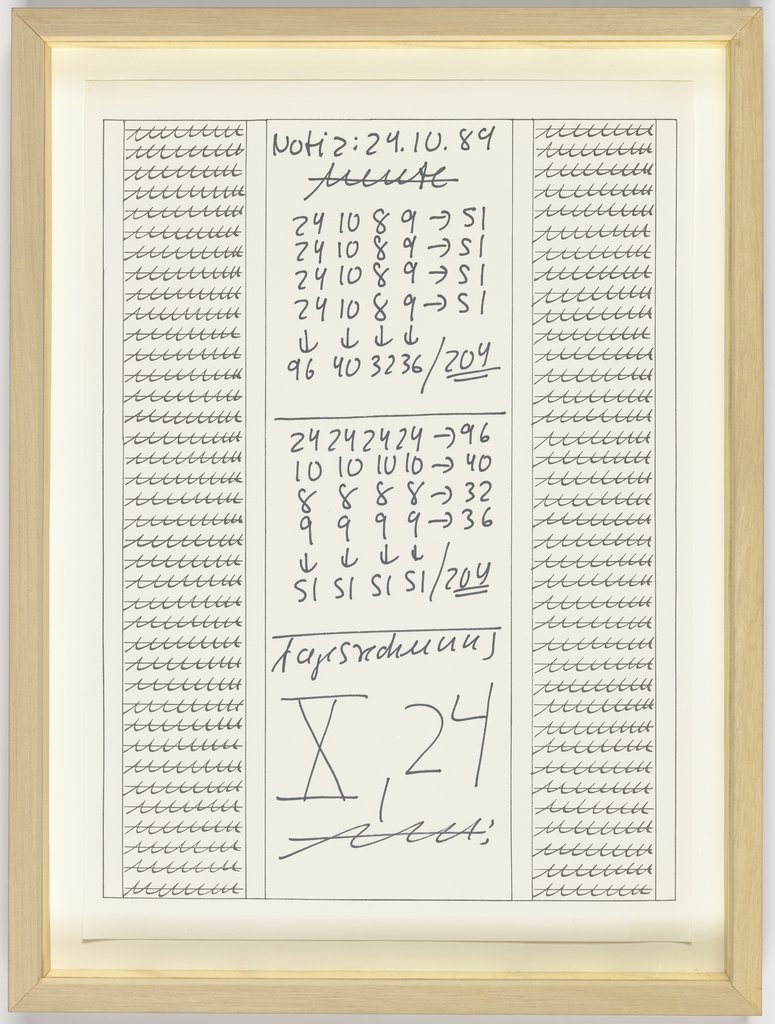 Notiz: 24.10.89
heute
24 10 8 9 → 51
24 10 8 9 → 51
24 10 8 9 → 51
24 10 8 9 → 51
↓ ↓ ↓ ↓
96 40 32 36 / 204
24 24 24 24 → 96
10 10 10 10 → 40
8 8 8 8 → 32
9 9 9 9 → 36
↓ ↓ ↓ ↓
51 51 51 51 / 204
Tagesrechnung
X, 24